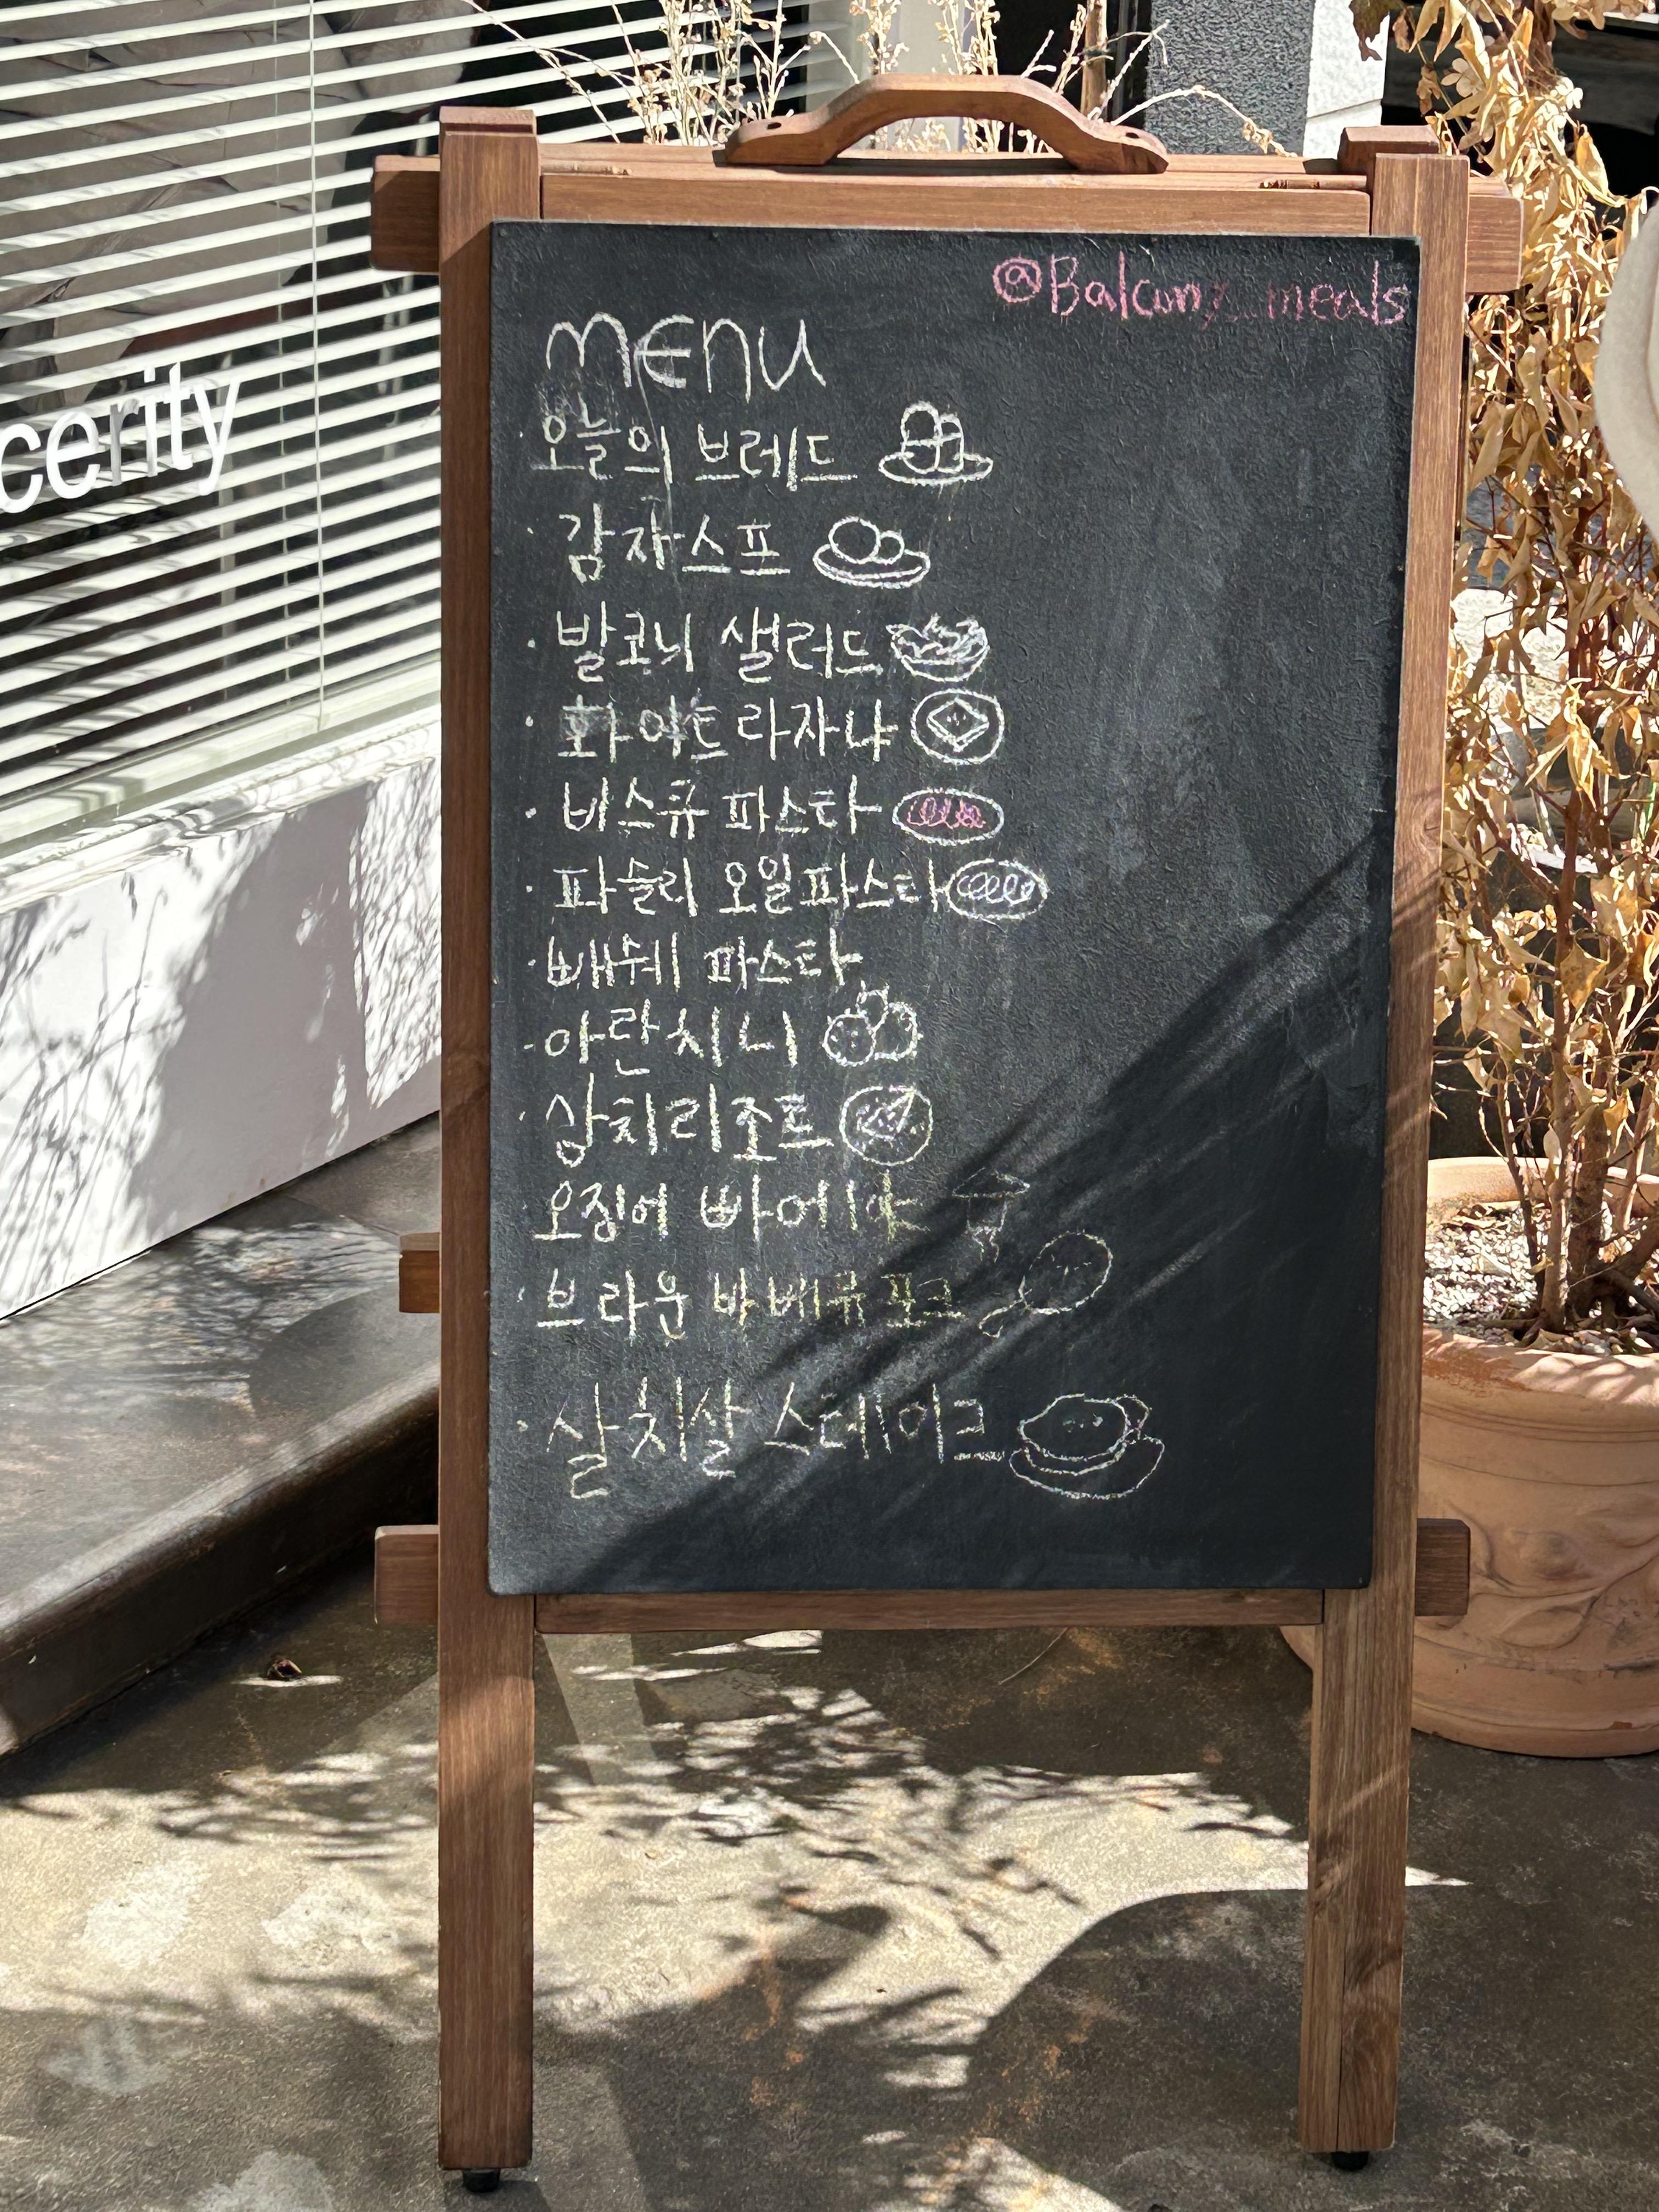 @Balcony_meals
MENU
· 오늘의 브레드
· 감자스프
· 발코니 샐러드
· 화이트라자냐
· 비스큐 파스타
· 파슬리 오일파스타
· 빠쉐 파스타
· 아란치니
· 삼치리조또
· 오징어 빠에야
· 브라운 바베큐 포크
· 살치살 스테이크
cerity